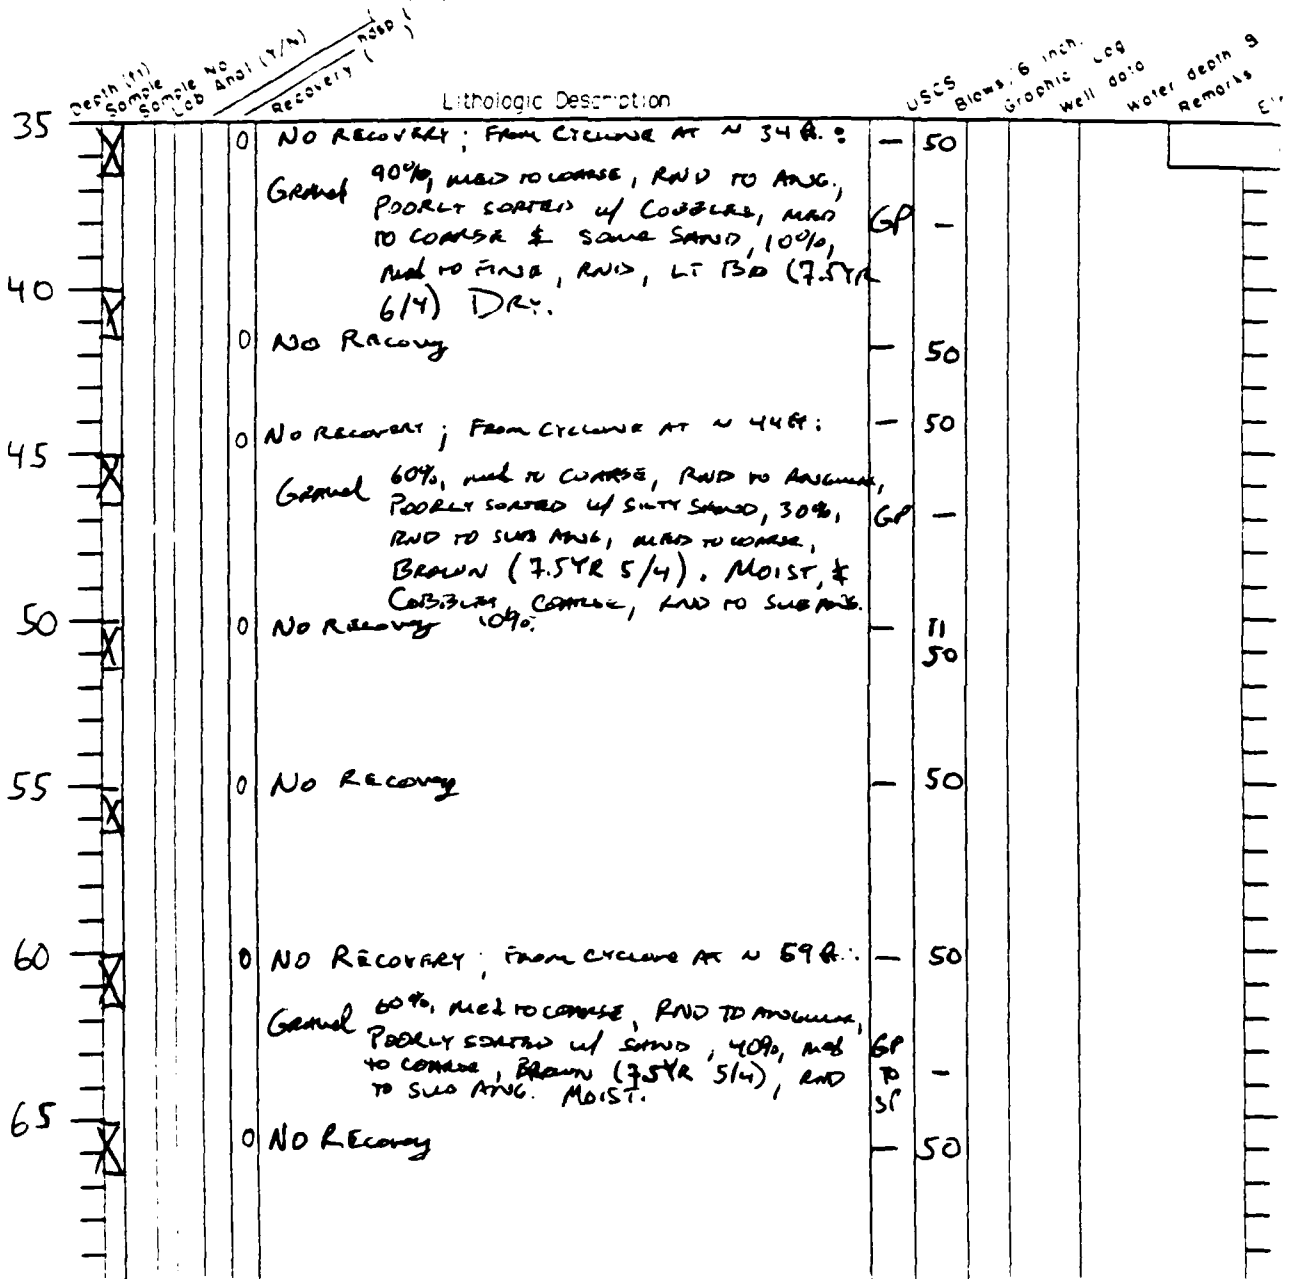 Depth (ft)
Sample
Sample No
Lab Anal (Y/N)
Recovery (
Lithologic Description
USCS
Blows/6 inch.
Graphic Log
Well data
Water depth
Remarks
35
0 NO RECOVERY; FROM CYCLONE AT ~ 34 ft.: — 50
Gravel 90%, MED TO COARSE, RND TO ANG.,
POORLY SORTED w/ COBBLES, MED
TO COARSE & SOME SAND, 10%, GP —
Med TO FINE, RND, LT BR (7.5YR
40
6/4) DRY.
0 NO Recovery — 50
0 NO RECOVERY; FROM CYCLONE AT ~ 44 ft: — 50
45
Gravel 60%, med TO COARSE, RND TO ANGULAR,
POORLY SORTED w/ SILTY SAND, 30%, GP —
RND TO SUB ANG, MED TO COARSE,
BROWN (7.5YR 5/4). MOIST, &
COBBLES, COARSE, RND TO SUB ANG.
50
0 NO Recovery 10%. — 11
50
55 0 NO Recovery — 50
60 0 NO RECOVERY; FROM CYCLONE AT ~ 59 ft.: — 50
Gravel 60%, Med TO COARSE, RND TO ANGULAR,
POORLY SORTED w/ SAND, 40%, MED GP
TO COARSE, BROWN (7.5YR 5/4), RND TO —
TO SUB ANG. MOIST. SP
65
0 NO Recovery — 50